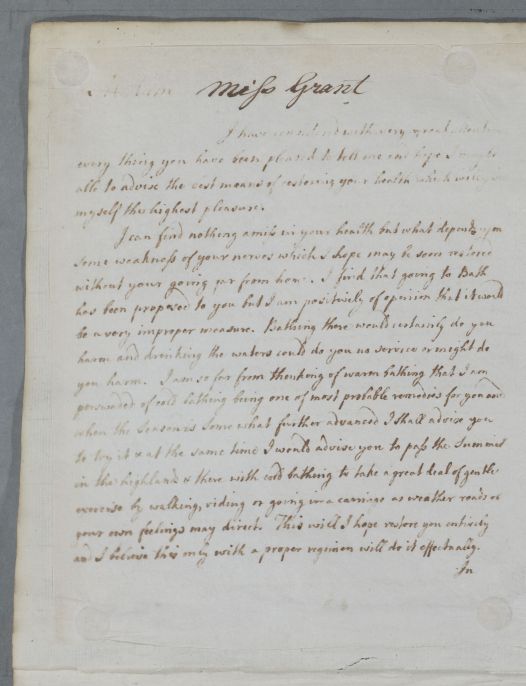 Madam Miss Grant
I have considered with very great attention
every thing you have been pleased to tell me and hope I may be
able to advise the best means of restoring your health which will give
myself the highest pleasure.
I can find nothing amiss in your health but what depends upon
some weakness of your nerves which I hope may be soon restored
without your going far from home. I find that going to Bath
has been proposed to you but I am positively of opinion that it would
be a very improper measure. Bathing there would certainly do you
harm and drinking the waters could do you no service or might do
you harm. I am so far from thinking of warm bathing that I am
persuaded of cold bathing being one of most probable remedies for you and
when the season is some what further advanced I shall advise you
to try it & at the same time I would advise you to pass the Summer
in the highlands & there with cold bathing to take a great deal of gentle
exercise by walking, riding or going in a carriage as weather roads or
your own feelings may direct. This will I hope restore you entirely
and I believe this only with a proper regimen will do it effectually.
In